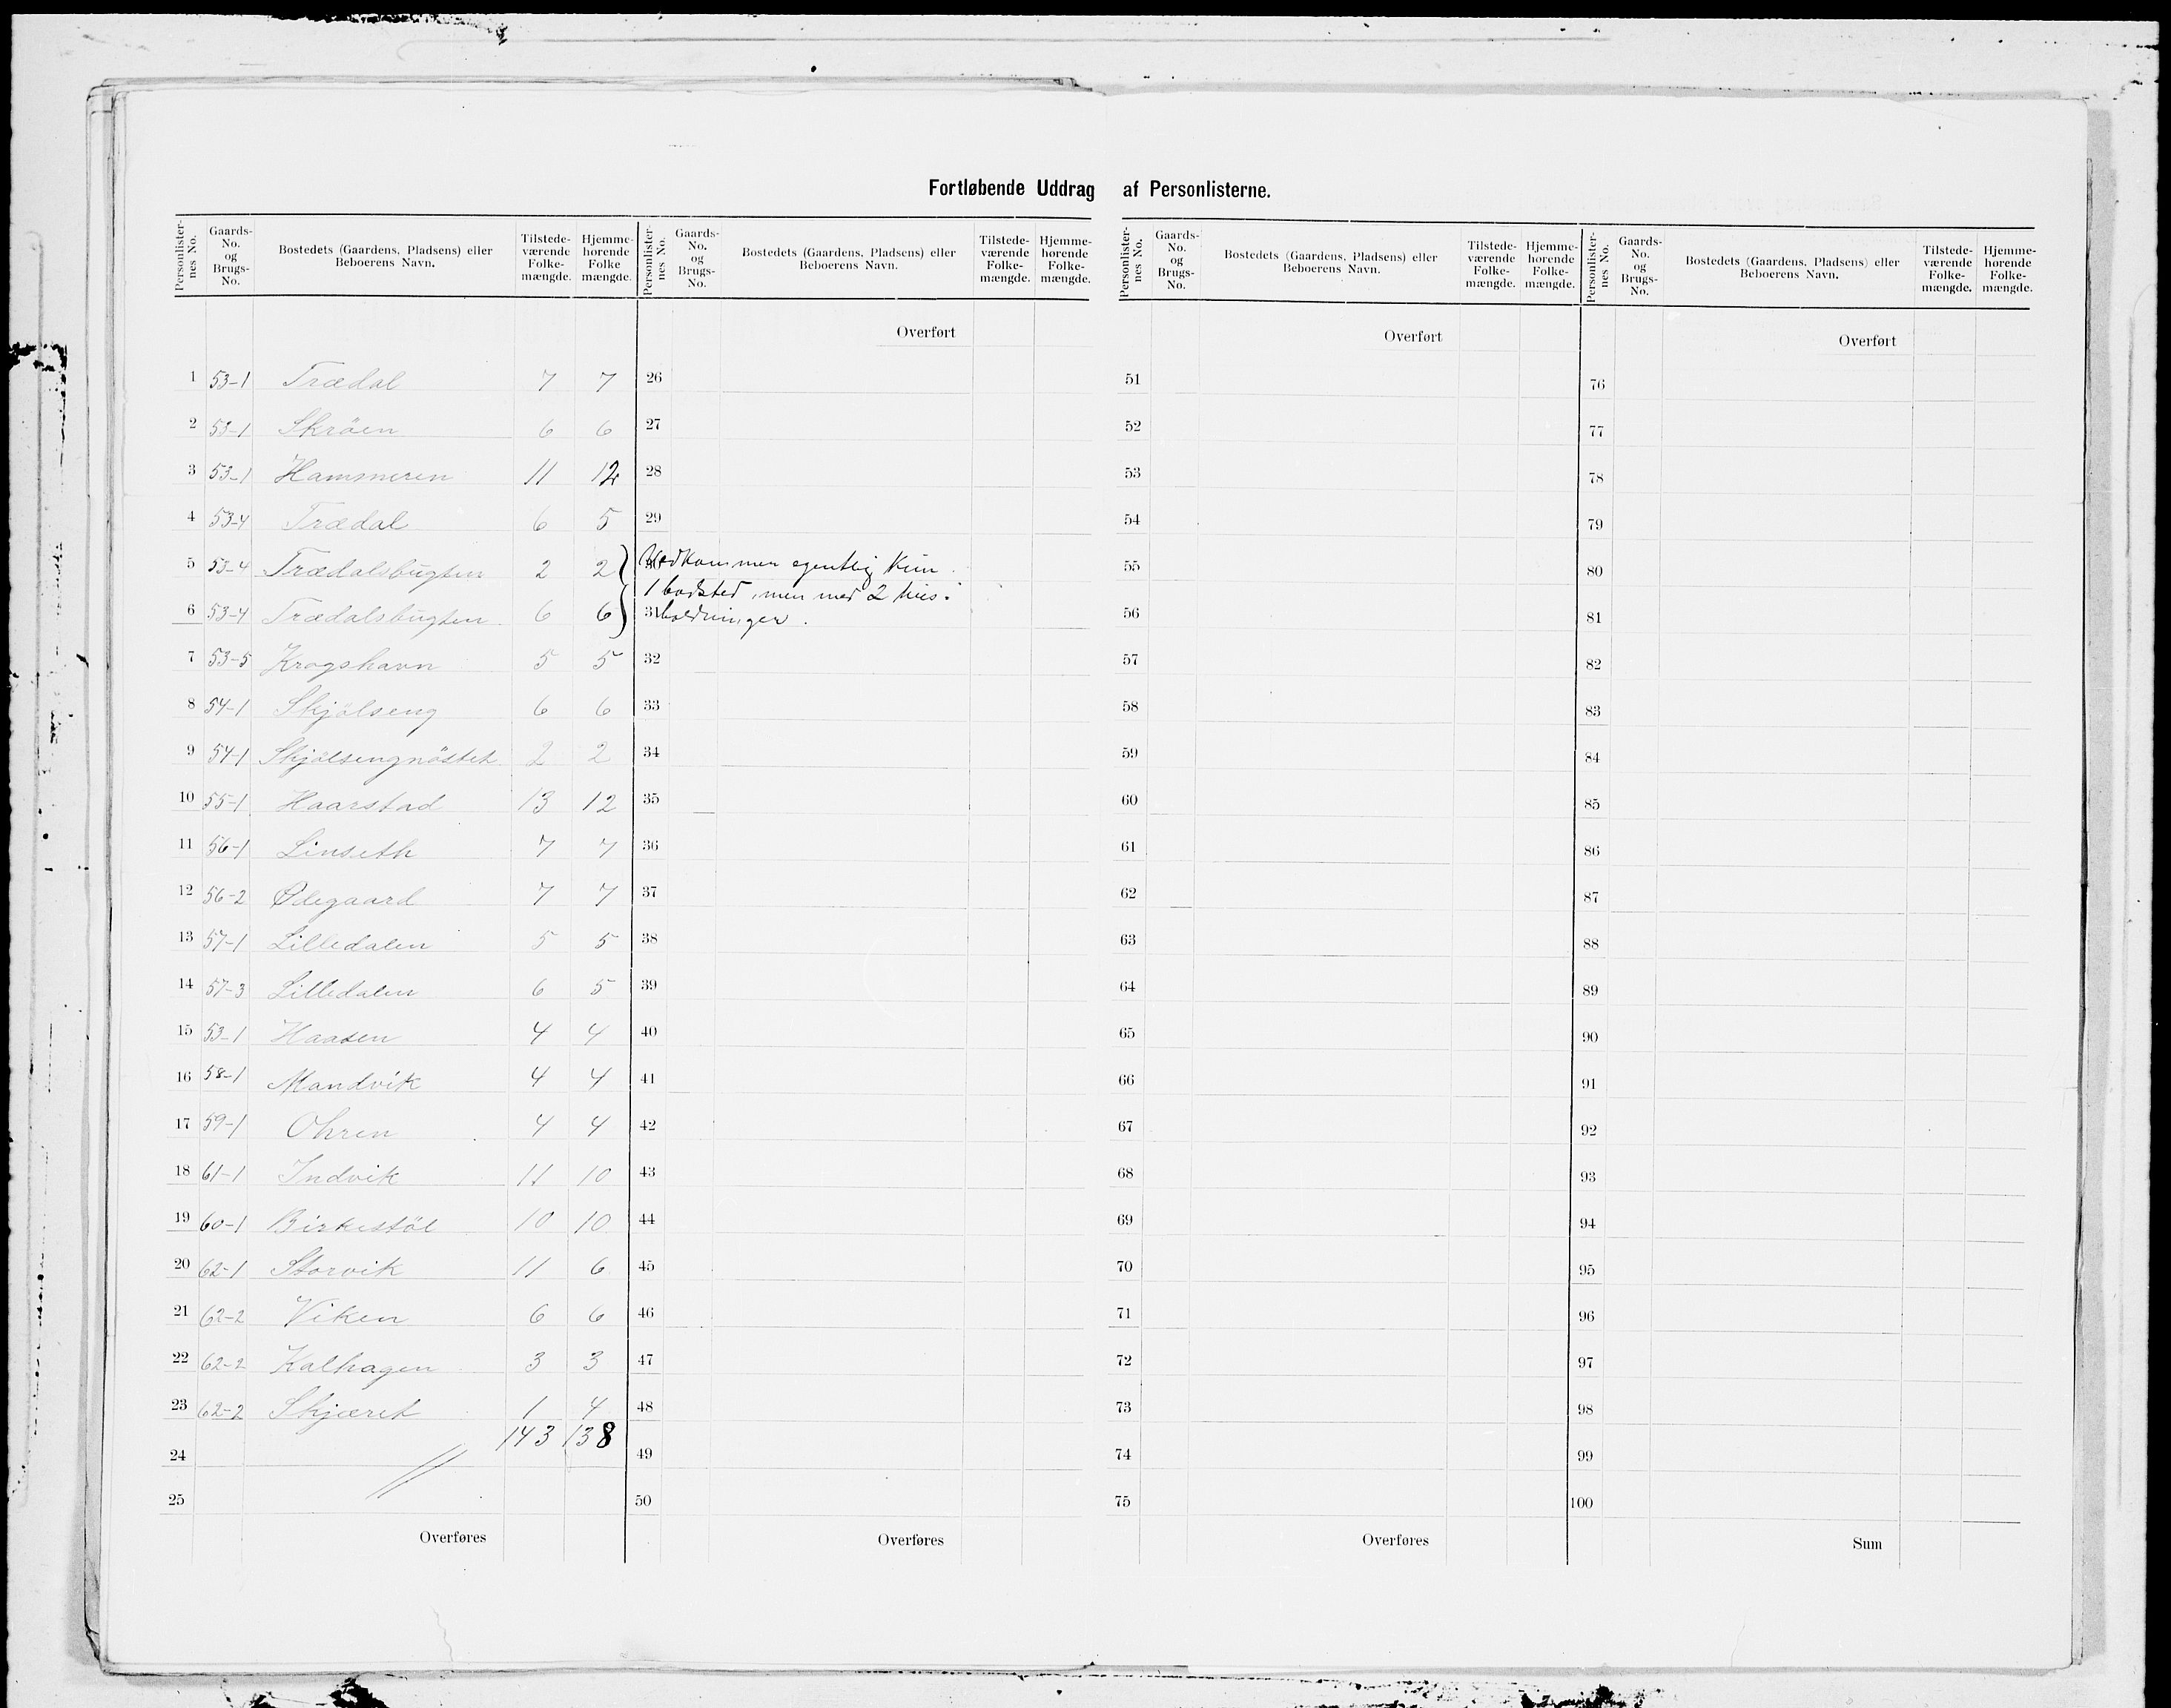 Fortløbende Uddrag af Personlisterne.
Personlister-nes No. Gaards-No. og Brugs-No. Bostedets (Gaardens, Pladsens) eller Beboerens Navn. Tilstede-værende Folke-mængde. Hjemme-hørende Folke mængde. Personlister-nes No. Gaards-No. og Brugs-No. Bostedets (Gaardens, Pladsens) eller Beboerens Navn. Tilstede-værende Folke-mængde. Hjemme-hørende Folke-mængde. Personlister-nes No. Gaards-No. og Brugs-No. Bostedets (Gaardens, Pladsens) eller Beboerens Navn. Tilstede-værende Folke-mængde. Hjemme-hørende Folke-mængde. Personlister-nes No. Gaards-No. og Brugs-No. Bostedets (Gaardens, Pladsens) eller Beboerens Navn. Tilstede-værende Folke-mængde. Hjemme-hørende Folke-mængde.
Overført Overført Overført
1 53-1 Trædal 7 7 26 51 76
2 53-1 Skröen 6 6 27 52 77
3 53-1 Hammeren 11 12 28 53 78
4 53-4 Trædal 6 5 29 54 79
5 53-4 Trædalsbugten 2 2 Vedkommer egentlig kun 55 80
1 bosted, men med 2 hus-
6 53-4 Trædalsbugten 6 6 31 holdninger. 56 81
7 53-5 Krogshavn 5 5 32 57 82
8 54-1 Skjölseng 6 6 33 58 83
9 54-1 Skjölsengnöstet 2 2 34 59 84
10 55-1 Haarstad 13 12 35 60 85
11 56-1 Linseth 7 7 36 61 86
12 56-2 Ødegaard 7 7 37 62 87
13 57-1 Lilledalen 5 5 38 63 88
14 57-3 Lilledalen 6 5 39 64 89
15 53-1 Haasen 4 4 40 65 90
16 58-1 Mandvik 4 4 41 66 91
17 59-1 Ohren 4 4 42 67 92
18 61-1 Indvik 11 10 43 68 93
19 60-1 Birkestöl 10 10 44 69 94
20 62-1 Storvik 11 6 45 70 95
21 62-2 Viken 6 6 46 71 96
22 62-2 Kalhagen 3 3 47 72 97
23 62-2 Skjæret 1 4 48 73 98
143 138
24 49 74 99
25 50 75 100
Overføres Overføres Overføres Sum